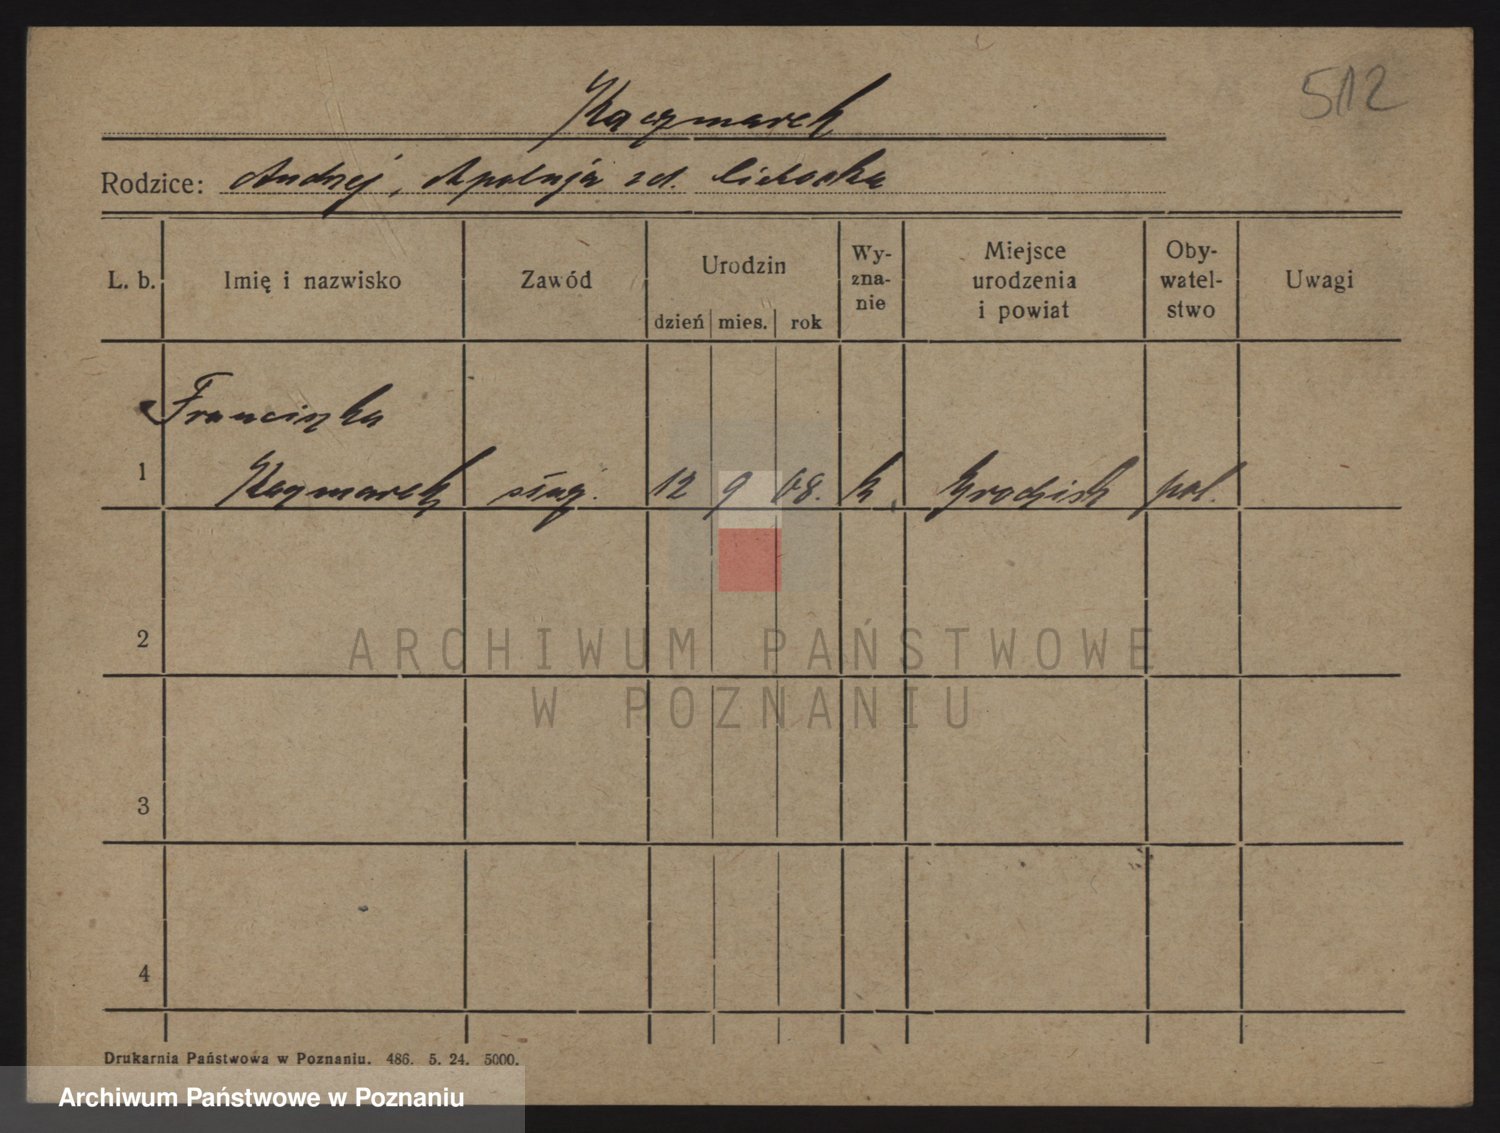 512
Kaczmarek
Rodzice: Andrzej, Apolonja zd.
L. b. Imię i nazwisko Zawód Urodzin dzień mies. rok Wy- zna- nie Miejsce urodzenia i powiat Oby- watel- stwo Uwagi
Franciszka
1 Kaczmarek służ. 12 9 08. k. Grodzisk pol.
2
ARCHIWUM PAŃSTWOWE
W POZNANIU
3
4
Drukarnia Państwowa w Poznaniu. 486. 5. 24. 5000.
Archiwum Państwowe w Poznaniu